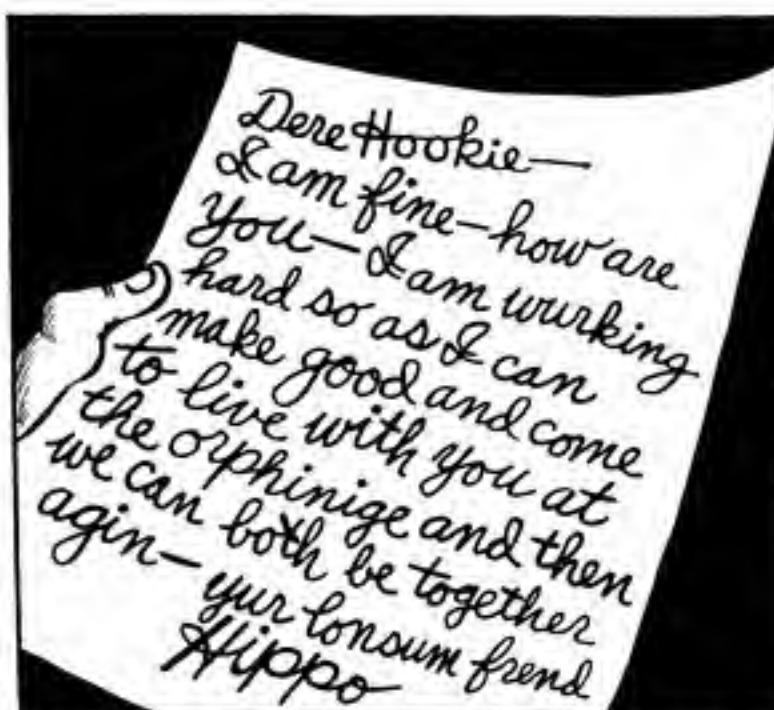 Dere Hookie—
I am fine—how are
you—I am wurking
hard so as I can
make good and come
to live with you at
the orphinige and then
we can both be together
agin—
yur lonsum frend
Hippo